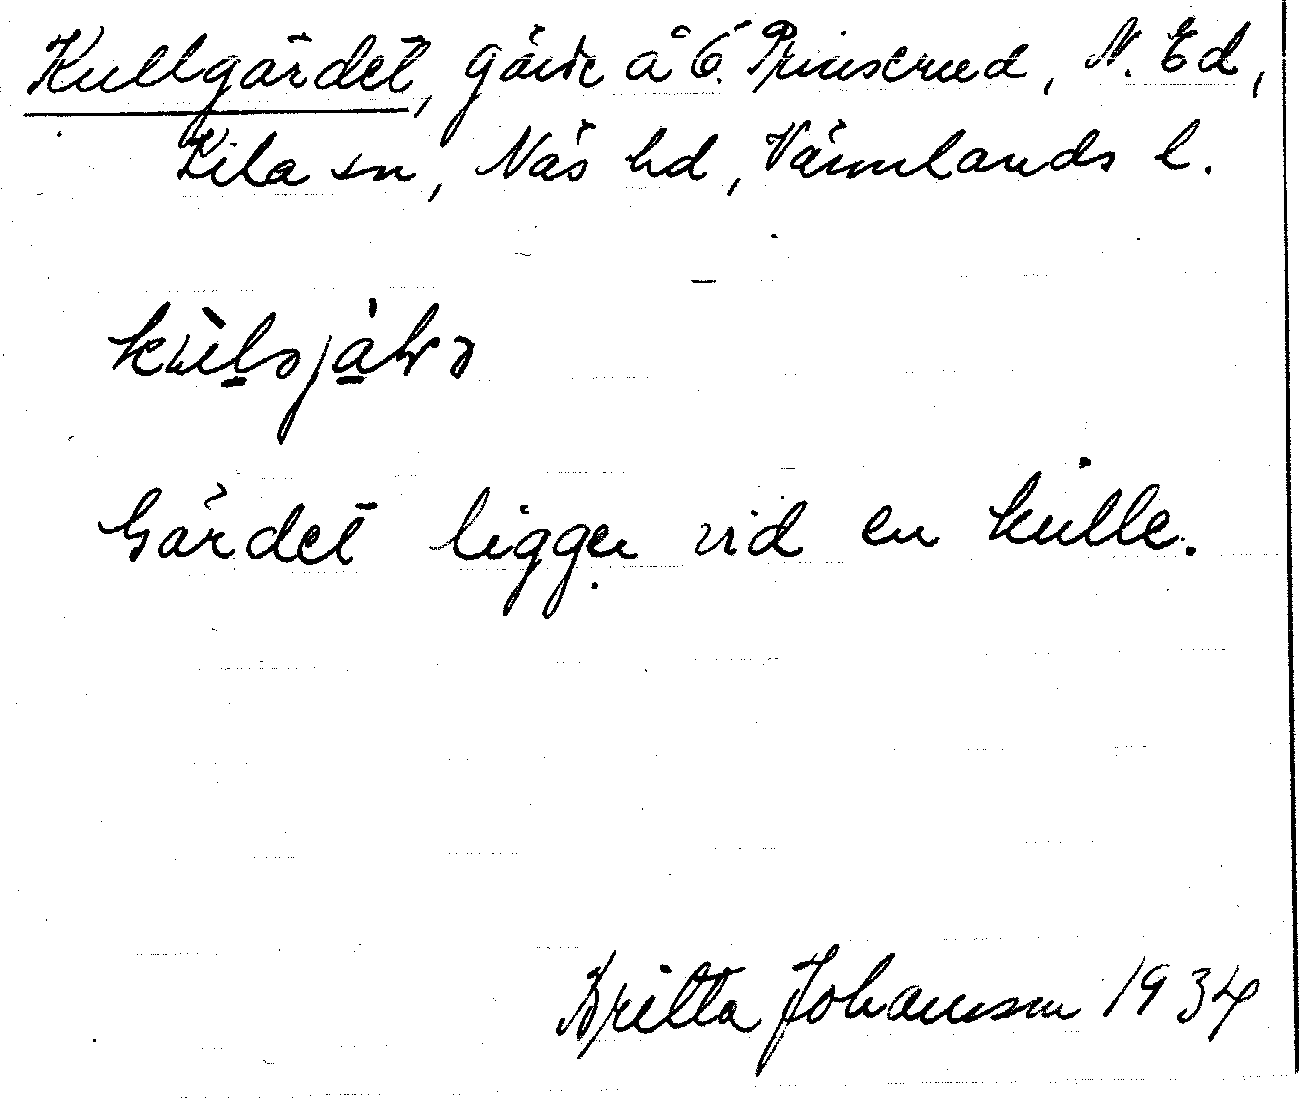 Kullgärdet, gärde å Ö. Prinserud, N. Ed,
Kila sn, Näs hd, Värmlands l.
Gärdet ligger vid en kulle.
Britta Johansson 1934